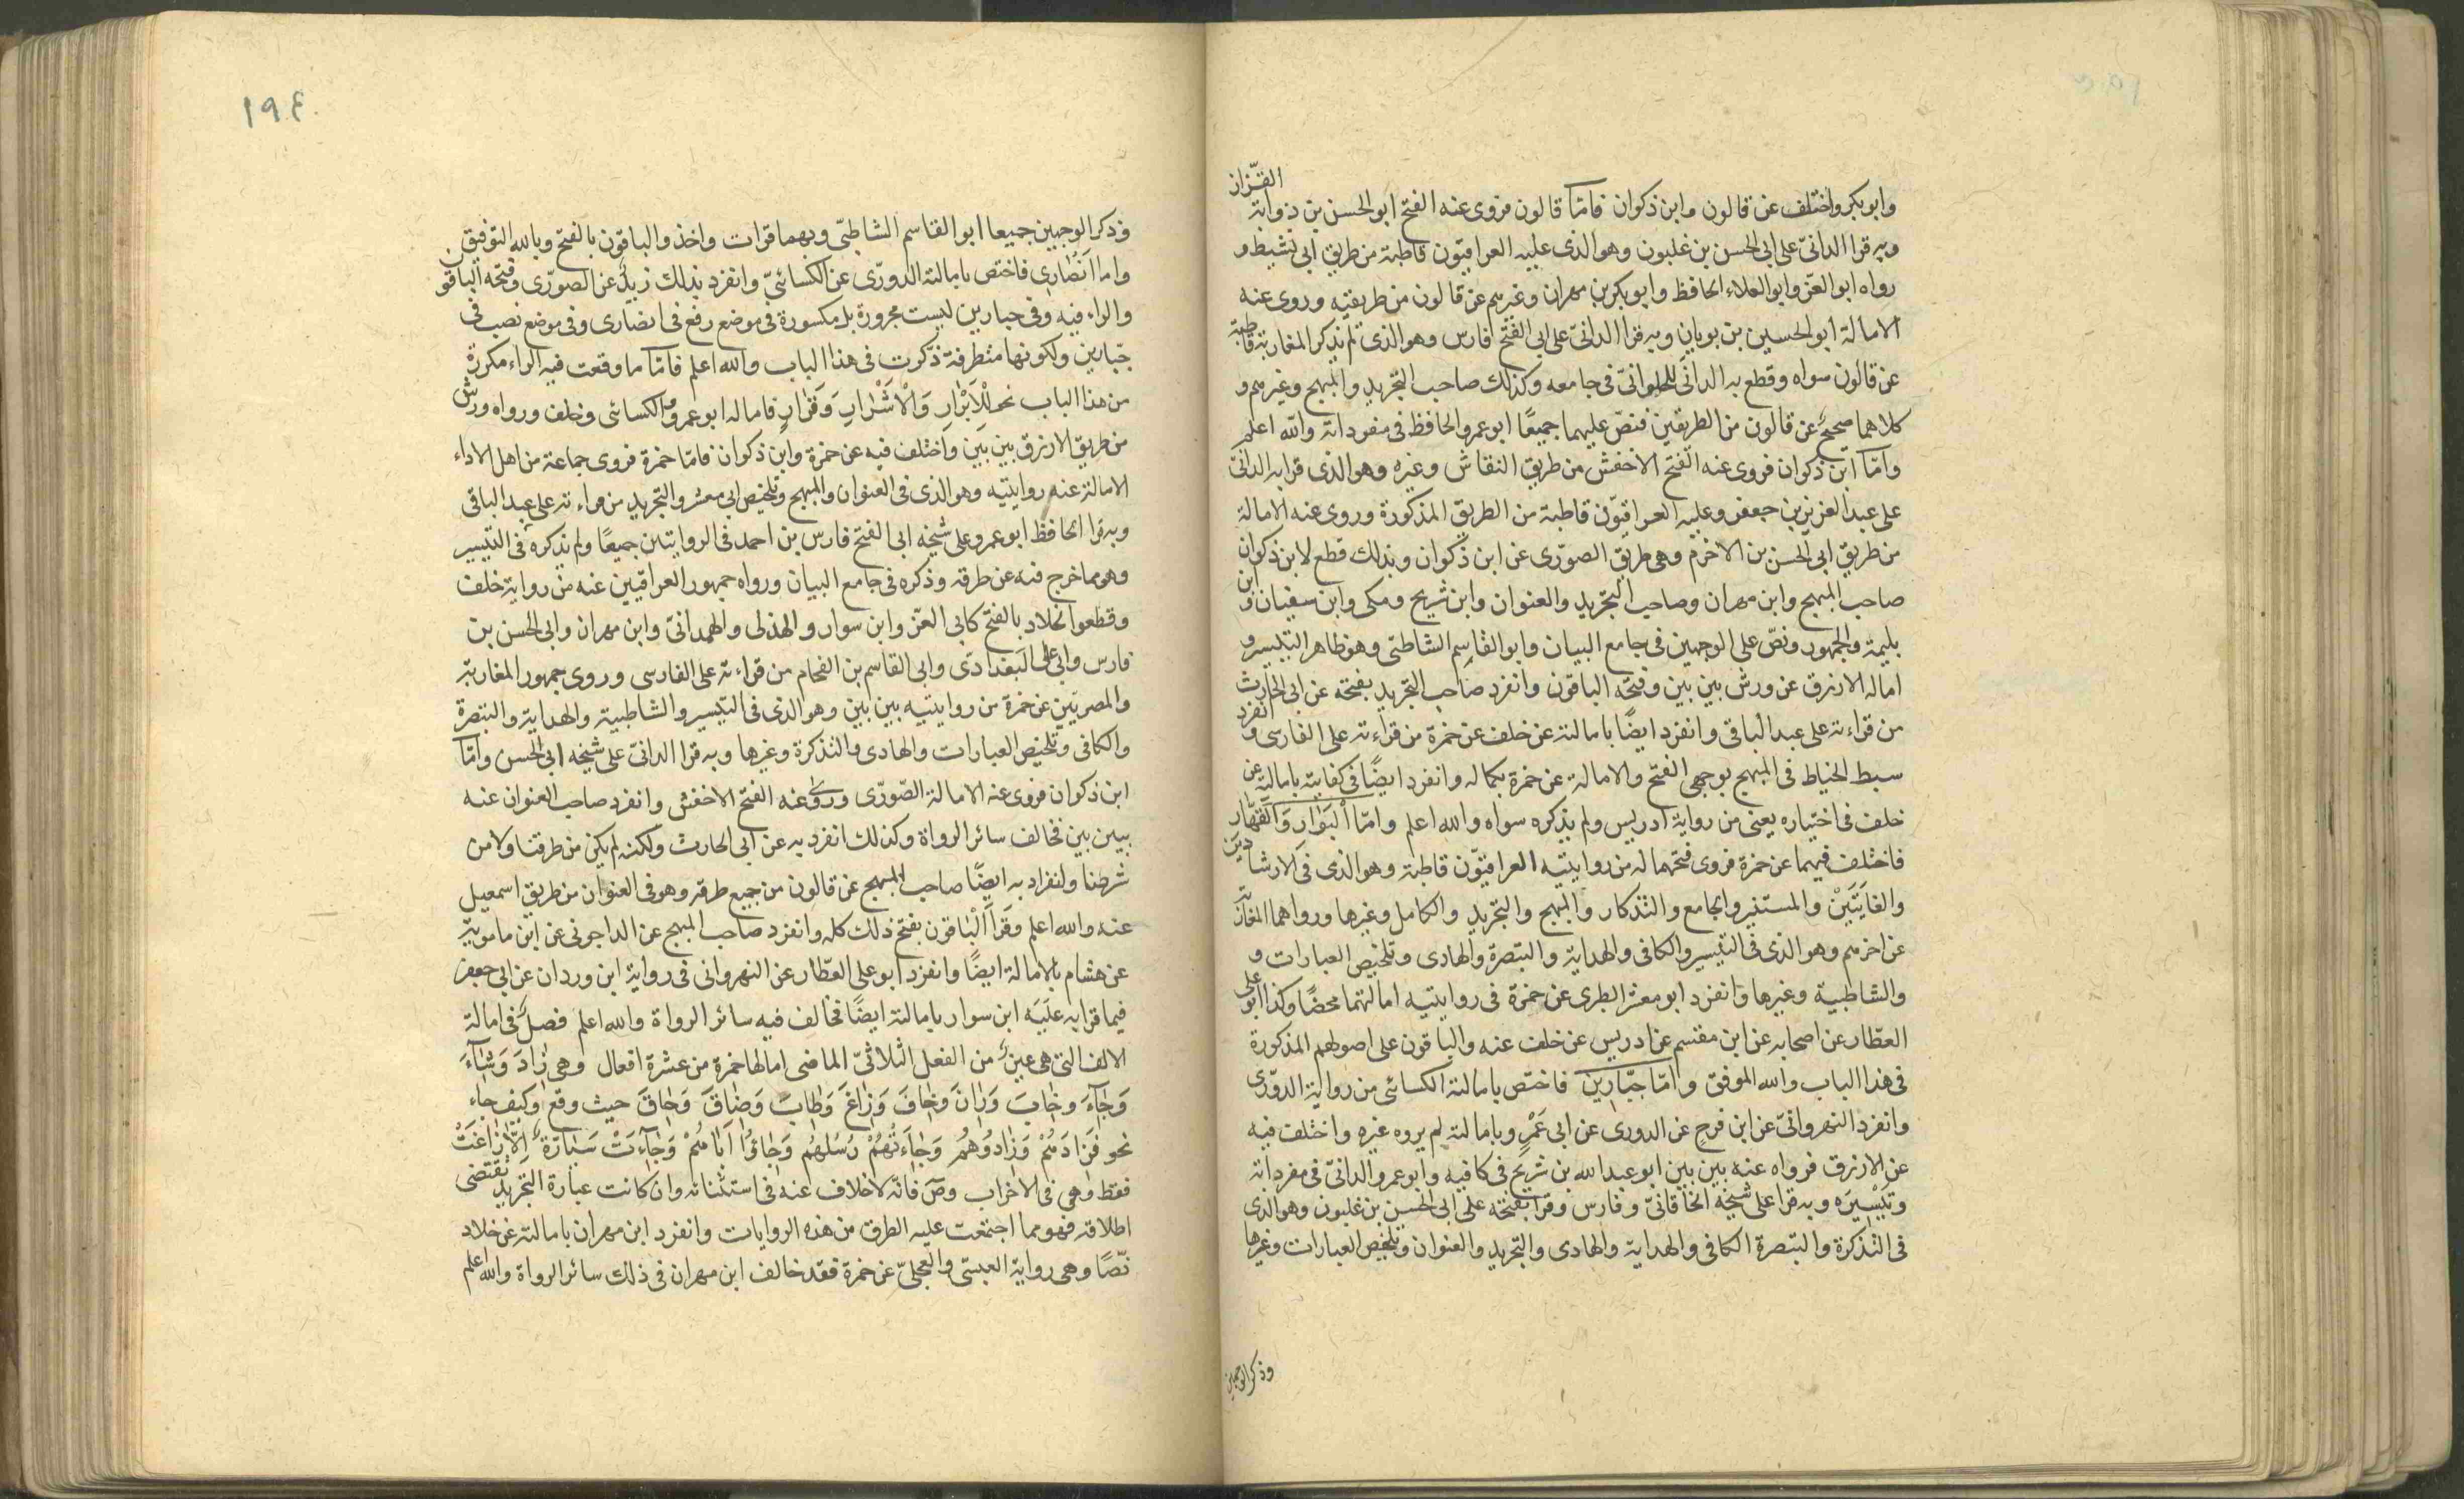 القزاز
وابو بكر واختلف عن قالون وابن ذكوان فامّا قالون فروى عنه الفتح ابو الحسن بن ذوابة
وبه قرا الدانىّ على ابى الحسن بن غلبون وهو الذى عليه العراقيّون قاطبة من طريق ابى نشيط و
رواه ابو العزّ وابو العلاء الحافظ وابو بكر بن مهران وغيرهم عن قالون من طريقيه وروى عنه
الامالة ابو الحسين بن بويان وبه قرا الدانىّ على ابى الفتح فارس وهو الذى لم يذكر المغاربة قاطبة
عن قالون سواه وقطع به الدانى للحلوانىّ فى جامعه وكذلك صاحب التجريد والمبهج وغيرهم و
كلاهما صحيحٌ عن قالون من الطريقين فنصّ عليهما جميعًا ابو عمرو الحافظ فى مفرداته والله اعلم
وامّا ابن ذكوان فروى عنه الفتح الاخفش من طريق النقاش وغيره وهو الذى قرا به الدانىّ
على عبد العزيز بن جعفر وعليه العراقيّون قاطبة من الطريق المذكورة وروى عنه الامالة
من طريق ابى الحسن بن الاخرم وهى طريق الصوّرى عن ابن ذكوان وبذلك قطع لابن ذكوان
صاحب المبهج وابن مهران وصاحب التجريد والعنوان وابن شريح ومكى وابن سفيان وابن
بليمة والجمهور ونصّ على الوجهين فى جامع البيان وابو القاسم الشاطبى وهو ظاهر التيسير و
اماله الازرق عن ورش بين بين وفتحه الباقون وانفرد صاحب التجريد بفتحه عن ابى الحارث
من قراءته على عبد الباقى وانفرد ايضًا بامالته عن خلف عن حمزة من قراءته على الفارسى وانفرد
سبط الخياط فى المبهج بوجهى الفتح والامالة عن حمزة بكماله وانفرد ايضًا فى كفايته بامالته عن
خلف فى اختياره يعنى من رواية ادريس ولم يذكره سواه والله اعلم وامّا الْبَوَارِ وَالْقَهَّارِ
فاختلف فيهما عن حمزة فروى فتحهما له من روايتيه العراقيّون قاطبة وهو الذى فى الارشادين
والغايَتَيْن والمستنير والجامع والتذكار والمبهج والتجريد والكامل وغيرها ورواهما المغاربة
عن اخرهم وهو الذى فى التيسير والكافى والهداية والتبصرة والهادى وتلخيص العبارات و
والشاطبية وغيرها وانفرد ابو معشر الطبرى عن حمزة فى روايتيه امالتهما محضًا وكذا ابو على
العطّار عن اصحابه عن ابن مقسم عن ادريس عن خلف عنه والباقون على اصولهم المذكورة
فى هذا الباب والله الموفق وامّا جبّارين فاختصّ بامالته الكسائى من رواية الدوّرى
وانفرد النهروانىّ عن ابن فرح عن الدورى عن ابى عَمْرٍ وبامالته لم يروه غيره واختلف فيه
عن الازرق فرواه عنه بين بين ابو عبد الله بن شريح فى كافيه وابو عمرو الدانىّ فى مفرداته
وتَيْسِيرَه وبه قرا على شيخه الخاقانىّ وفارس وقرا بفتحه على ابى الحسن بن غلبون وهو الذى
فى التذكرة والتبصرة الكافى والهداية والهادى والتجريد والعنوان وتلخيص العبارات وغيرها
وذكر الوجهين
١٩٤
وذكر الوجهين جميعا ابو القاسم الشاطبّى وبهما قرات واخذ والباقون بالفتح وبالله التوفيق
واما اَنْصَارى فاختص بامالته الدورّى عن الكسائىّ وانفرد بذلك زيدٌ عن الصورّى وفتحه الباقون
والراء فيه وفى جبارين ليست مجرورة بل مكسورة فى موضع رفع فى انصارى وفى موضع نصب فى
جبّارين ولكونها متطرفة ذكرت فى هذا الباب والله اعلم فامّا ما وقعت فيه الراء مكررة
من هذا الباب نحو لِلْأَبْرَارِ وَالْأَشْرَارِ وَقَرَارٍ فاماله ابو عمرو والكسائى وخلف ورواه ورش
من طريق الازرق بين بين واختلف فيه عن حمزة وابن ذكوان فامّا حمزة فروى جماعة من اهل الاداء
الامالة عنه روايتيه وهو الذى فى العنوان والمبهج وتلخيص ابى معشر والتجريد من قراءته على عبد الباقى
وبه قرا الحافظ ابو عمرو على شيخه ابى الفتح فارس بن احمد فى الروايتين جميعًا ولم يذكره فى التيسير
وهو مما خرج فيه عن طرقه وذكره فى جامع البيان ورواه جمهور العراقيين عنه من رواية خلف
وقطعوا لخلاد بالفتح كابى العزّ وابن سوار والهذلى والهمدانىّ وابن مهران وابى الحسن بن
فارس وابى على البغدادى وابى القاسم بن الفحام من قراءته على الفارسى وروى جمهور المغاربة
والمصريّين عن حمزة من روايتيه بين بين وهو الذى فى التيسير والشاطبية والهداية والتبصرة
والكافى وتلخيص العبارات والهادى والتذكرة وغيرها وبه قرا الدانىّ على شيخه ابى الحسن وامّا
ابن ذكوان فروى عنه الامالة الصّورّى وروى عنه الفتح الاخفش وانفرد صاحب العنوان عنه
ببين بين فخالف سائر الرواة وكذلك انفرد به عن ابى الحارث ولكنه لم يكن من طرقنا ولا من
شرطنا وانفراد به ايضًا صاحب المبهج عن قالون من جميع طرقه وهو فى العنوان من طريق اسمعيل
عنه والله اعلم وقَرأ الْباقون بفتح ذلك كله وانفرد صاحب المبهج عن الداجونى عن ابن مامويه
عن هشام بالامالة ايضًا وانفرد ابو على العطّار عن النهروانى فى رواية ابن وردان عن ابى جعفر
فيما قرا به عليه ابن سوار بامالته ايضًا فخالف فيه سائر الرواة والله اعلم فصلٌ فى امالة
الالف التى هى عينٌ من الفعل الثلاثىّ الماضى امالها حمزة من عشرة افعال وهى زادَ وَشَآءَ
وَجَآءَ وخَابَ وَرَانَ وَخَافَ وَزَاغَ وَطابَ وَضَاقَ وَحَاقَ حيث وقع وكيف جاء
نحو فَزَادَهُمْ وَزَادُوهُمْ وَجَاءَتْهُمْ رُسُلُهُم وَجَاؤُا اَبَاهُمْ وَجَآءَتْ سَيَّارَةٌ اِلَّا زَاغَتْ
فقط وهى فى الاحزاب وصۤ فانّه لا خلاف عنه فى استثنائه وان كانت عبارة التجريد تقتضى
اطلاقه فهو مما اجتمعت عليه الطرق من هذه الروايات وانفرد ابن مهران بامالته عن خلاد
نصًّا وهى رواية العبسى والعجلىّ عن حمزة فقد خالف ابن مهران فى ذلك سائر الرواة والله اعلم